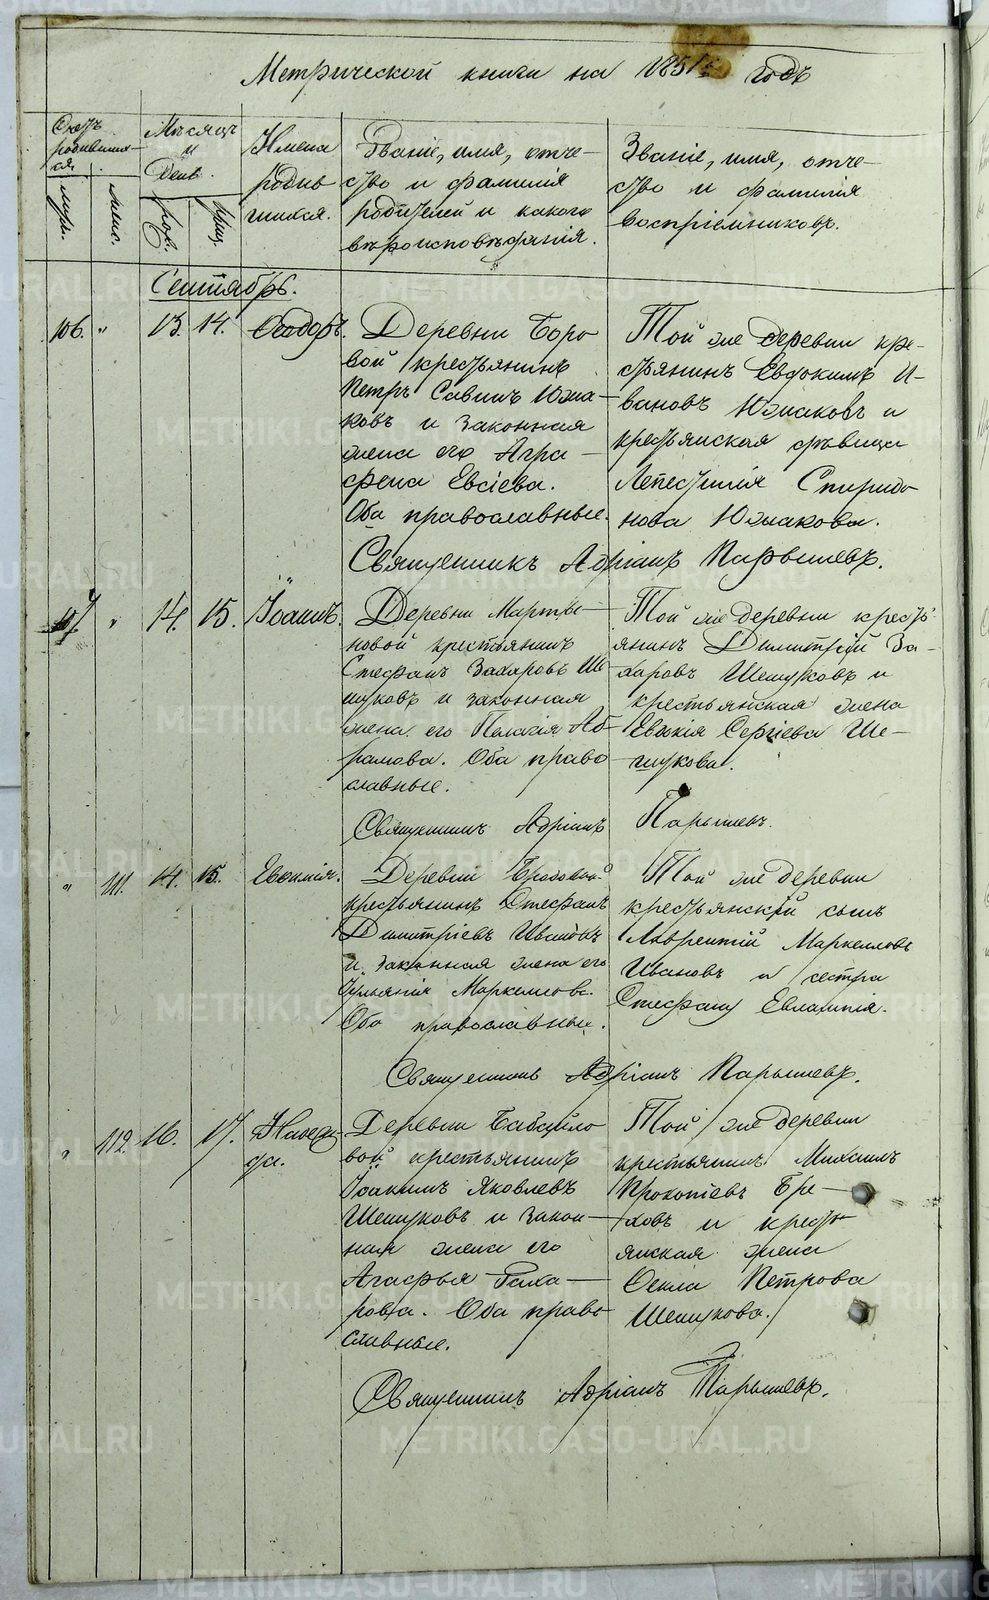 Метрической книги на 185 годъ
Счетъ
родивших-
ся.
муж.
жен.
Мѣсяцъ
и
День.
рож.
крещ.
Имена
родив
шихся.
Званіе, имя, отче-
ство и фамилія
родителей и какого
вѣроисповѣданія.
Званіе, имя, отче-
ство и фамилія
воспріемниковъ.
Сентябрь.
106. " 13. 14. Ѳеодоръ.
Деревни Боро
вой крестьянинъ
Петръ Савинъ Южа-
ковъ и законная
жена его Агра-
фена Евсіева.
Оба православные.
Той же деревни кре-
стьянинъ Евдокимъ И-
вановъ Южаковъ и
крестьянская дѣвица
Спиридо
нова Южакова.
Священникъ Адріанъ Парышевъ.
107 " 14. 15. Іоаннъ.
Деревни Марты-
новой крестьянинъ
Стефанъ Захаровъ Ше
шуковъ и законная
жена его Пелагія Аб
рамова. Оба право
славные.
Той же деревни кресть
янинъ Димитрій За-
харовъ Шешуковъ и
крестьянская жена
Евдокія Сергіева Ше-
шукова.
Священникъ Адріанъ Парышевъ.
" 111. 14. 15. Евфимія.
Деревни
крестьянинъ Стефанъ
Димитріевъ Ивановъ
и законная жена его
Іуліанія Маркелова.
Оба православные.
Той же деревни
крестьянскій сынъ
Лаврентій Маркелловъ
Ивановъ и сестра
Стефану Евлампія.
Священникъ Адріанъ Парышевъ.
" 112 16. 17. Надеж
да.
Деревни Бабайло
вой крестьянинъ
Іоакимъ Яковлевъ
Шешуковъ и закон-
ная жена его
Агафья Заха-
рова. Оба право
славные.
Той же деревни
крестьянинъ Михаилъ
Прокопіевъ Бре-
ховъ и кресть
янская жена
Ѳекла Петрова
Шешукова.
Священникъ Адріанъ Парышевъ.
METRIKI.GASO-URAL.RU